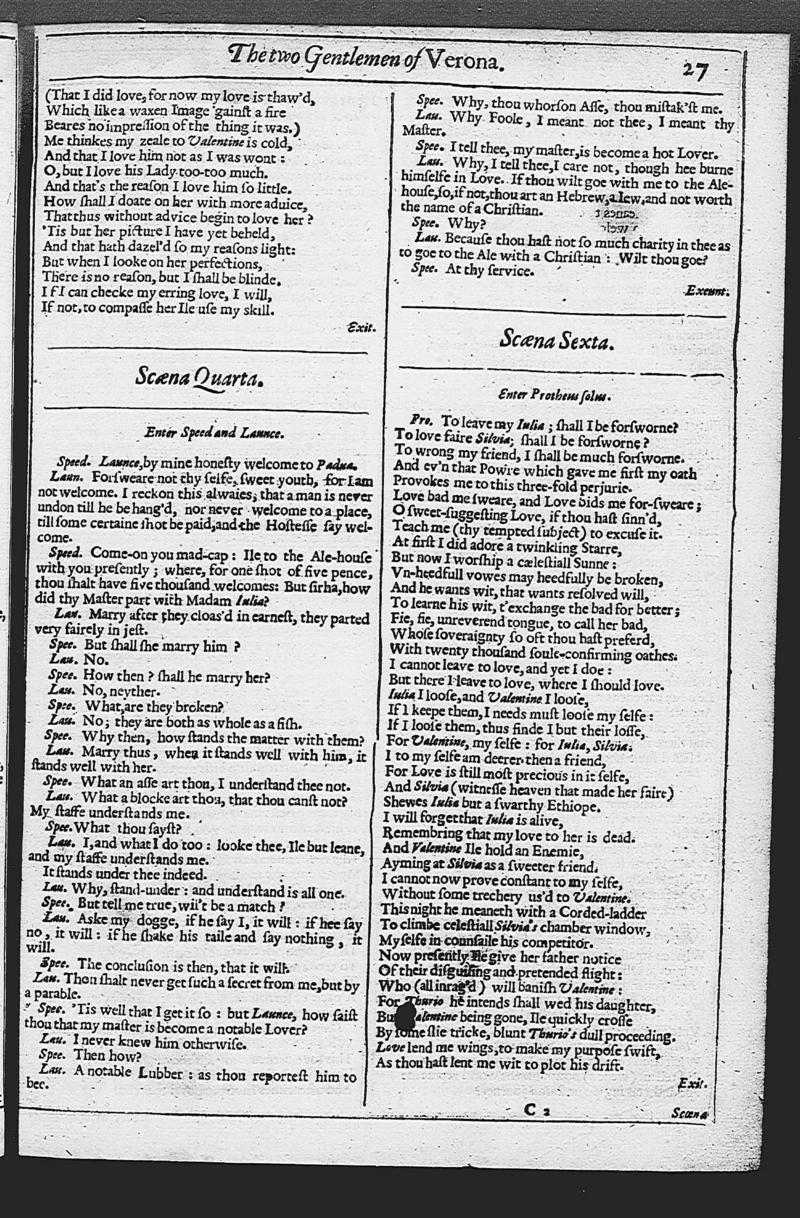 The two Gentlemen of Verona.
27
(That I did love, for now my love is thaw'd,
Which like a waxen Image 'gainſt a fire
Beares no impreſſion of the thing it was.)
Me thinkes my zeale to Valentine is cold,
And that I love him not as I was wont:
O, but I love his Lady too-too much.
And that's the reaſon I love him ſo little.
How ſhall I doate on her with more aduice,
That thus without advice begin to love her?
'Tis but her picture I have yet beheld,
And that hath dazel'd ſo my reaſons light:
But when I looke on her perfections,
There is no reaſon, but I ſhall be blinde.
If I can checke my erring love, I will,
If not, to compaſſe her Ile uſe my skill.
Exit.
Scæna Quarta.
Enter Speed and Launce.
Speed. Launce, by mine honeſty welcome to Padua.
Laun. Forſweare not thy ſelfe, ſweet youth, for I am
not welcome. I reckon this alwaies, that a man is never
undon till he be hang'd, nor never welcome to a place,
till ſome certaine ſhot be paid, and the Hoſteſſe ſay wel-
come.
Speed. Come-on you mad-cap: Ile to the Ale-houſe
with you preſently; where, for one ſhot of five pence,
thou ſhalt have five thouſand welcomes: But ſirha, how
did thy Maſter part with Madam Iulia?
Lau. Marry after they cloas'd in earneſt, they parted
very fairely in jeſt.
Spee. But ſhall ſhe marry him?
Lau. No.
Spee. How then? ſhall he marry her?
Lau. No, neyther.
Spee. What, are they broken?
Lau. No; they are both as whole as a fiſh.
Spee. Why then, how ſtands the matter with them?
Lau. Marry thus, when it ſtands well with him, it
ſtands well with her.
Spee. What an aſſe art thou, I underſtand thee not.
Lau. What a blocke art thou, that thou canſt not?
My ſtaffe underſtands me.
Spee. What thou ſayſt?
Lau. I, and what I do too: looke thee, Ile but leane,
and my ſtaffe underſtands me.
It ſtands under thee indeed.
Lau. Why, ſtand-under: and underſtand is all one.
Spee. But tell me true, wil't be a match?
Lau. Aske my dogge, if he ſay I, it will: if hee ſay
no, it will: if he ſhake his taile and ſay nothing, it
will.
Spee. The concluſion is then, that it will.
Lau. Thou ſhalt never get ſuch a ſecret from me, but by
a parable.
Spee. 'Tis well that I get it ſo: but Launce, how ſaiſt
thou that my maſter is become a notable Lover?
Lau. I never knew him otherwiſe.
Spee. Then how?
Lau. A notable Lubber: as thou reporteſt him to
bee.
Spee. Why, thou whorſon Aſſe, thou miſtak'ſt me.
Lau. Why Foole, I meant not thee, I meant thy
Maſter.
Spee. I tell thee, my maſter, is become a hot Lover.
Lau. Why, I tell thee, I care not, though hee burne
himſelfe in Love. If thou wilt goe with me to the Ale-
houſe, ſo, if not, thou art an Hebrew, a Iew, and not worth
the name of a Chriſtian.
Spee. Why?
Lau. Becauſe thou haſt not ſo much charity in thee as
to goe to the Ale with a Chriſtian: Wilt thou goe?
Spee. At thy ſervice.
Exeunt.
Scæna Sexta.
Enter Protheus ſolus.
Pro. To leave my Iulia; ſhall I be forſworne?
To love faire Silvia; ſhall I be forſworne?
To wrong my friend, I ſhall be much forſworne.
And ev'n that Powre which gave me firſt my oath
Provokes me to this three-fold perjurie.
Love bad me ſweare, and Love bids me for-ſweare;
O ſweet-ſuggeſting Love, if thou haſt ſinn'd,
Teach me (thy tempted ſubject) to excuſe it.
At firſt I did adore a twinkling Starre,
But now I worſhip a cæleſtiall Sunne:
Vn-heedfull vowes may heedfully be broken,
And he wants wit, that wants reſolved will,
To learne his wit, t'exchange the bad for better;
Fie, fie, unreverend tongue, to call her bad,
Whoſe ſoveraignty ſo oft thou haſt preferd,
With twenty thouſand ſoule-confirming oathes.
I cannot leave to love, and yet I doe:
But there I leave to love, where I ſhould love.
Iulia I looſe, and Valentine I looſe,
If I keepe them, I needs muſt looſe my ſelfe:
If I looſe them, thus finde I but their loſſe,
For Valentine, my ſelfe: for Iulia, Silvia.
I to my ſelfe am deerer then a friend,
For Love is ſtill moſt precious in it ſelfe,
And Silvia (witneſſe heaven that made her faire)
Shewes Iulia but a ſwarthy Ethiope.
I will forget that Iulia is alive,
Remembring that my love to her is dead.
And Valentine Ile hold an Enemie,
Ayming at Silvia as a ſweeter friend.
I cannot now prove conſtant to my ſelfe,
Without ſome trechery us'd to Valentine.
This night he meaneth with a Corded-ladder
To climbe celeſtiall Silvia's chamber window,
My ſelfe in counſaile his competitor.
Now preſently Ile give her father notice
Of their diſguiſing and pretended flight:
Who (all inrag'd) will baniſh Valentine:
For Thurio he intends ſhall wed his daughter,
But Valentine being gone, Ile quickly croſſe
By ſome ſlie tricke, blunt Thurio's dull proceeding.
Love lend me wings, to make my purpoſe ſwift,
As thou haſt lent me wit to plot his drift.
Exit.
C 2
Scæna